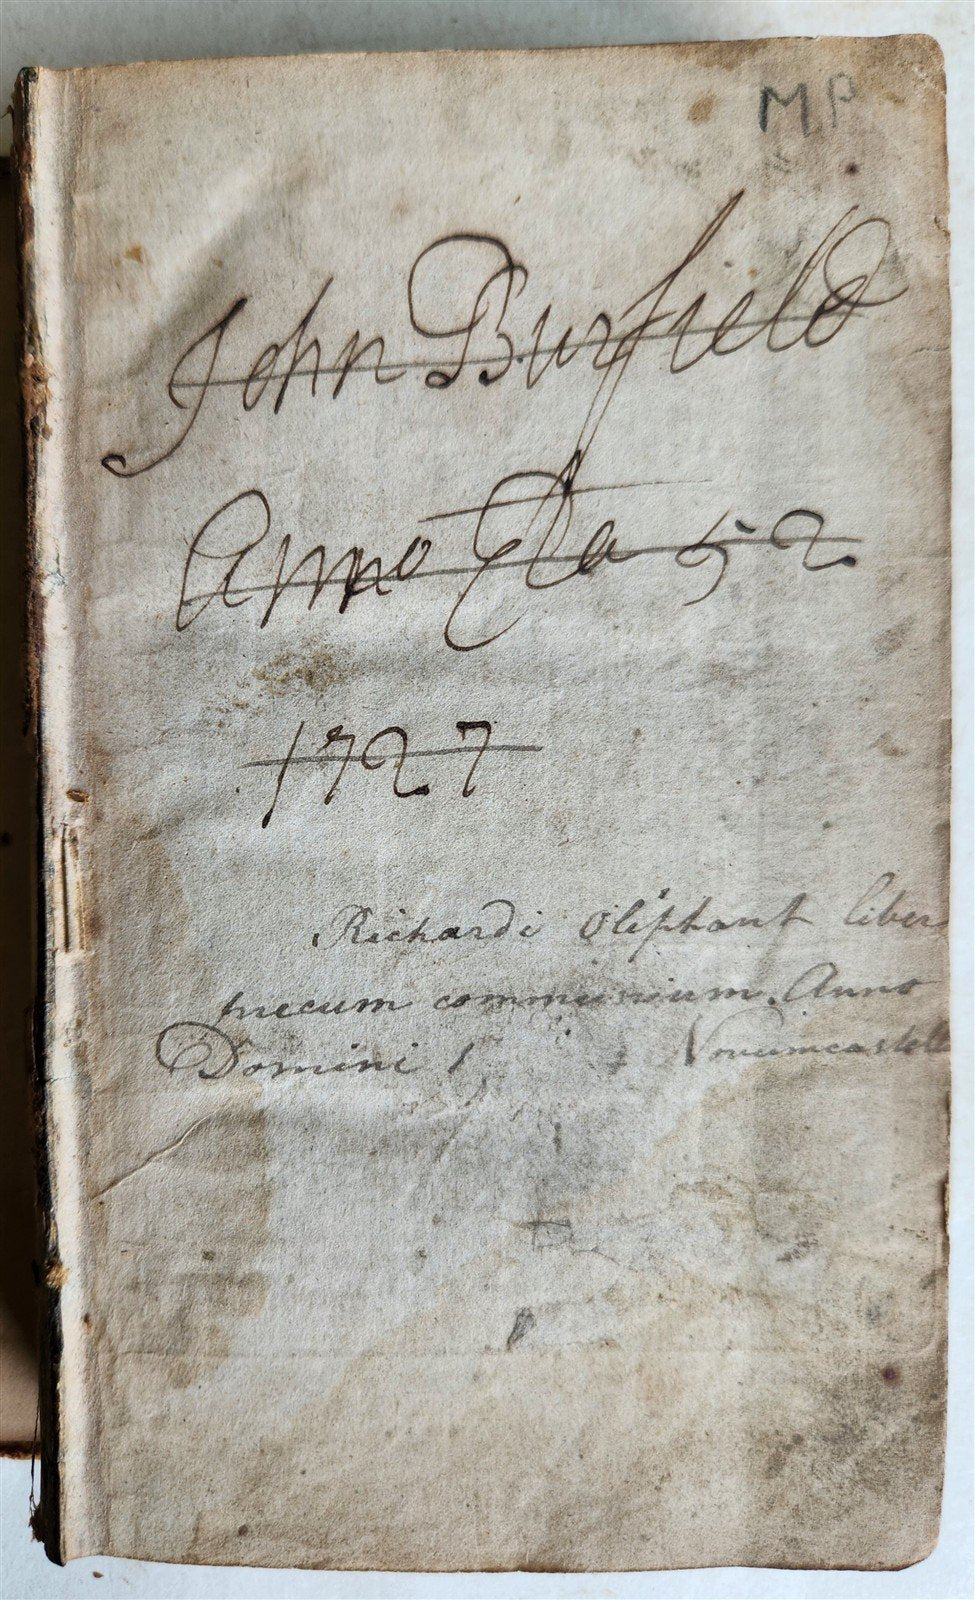 MP
John Burfield
Anno Æta 52
1727
Richardi Oliphant liber
mecum communium. Anno
Domini 1 Novumcastell